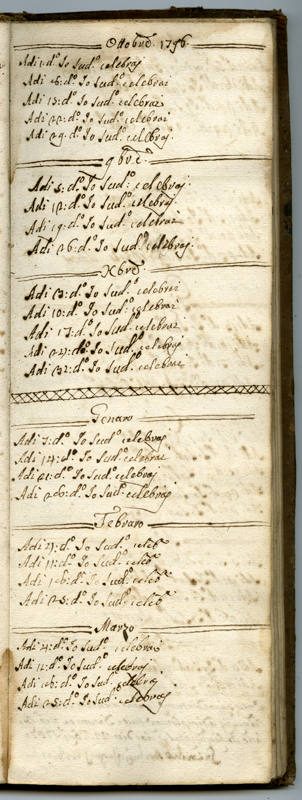 Ottobre 1756
Adi 1: d.º Io Sud.º celebrai
Adi 6: d.º Io Sud.º celebrai
Adi 13: d.º Io Sud.º celebrai
Adi 22: d.º Io Sud.º celebrai
Adi 29: d.º Io Sud.º celebrai
9bre
Adi 5: d.º Io Sud.º celebraj
Adi 12: d.º Io Sud.º celebraj
Adi 19: d.º Io Sud.º celebrai
Adi 26: d.º Io Sud.º celebraj
Xbre
Adi 3: d.º Io Sud.º celebrai
Adi 10: d.º Io Sud.º celebrai
Adi 17: d.º Io Sud.º celebrai
Adi d.º Io Sud.º celebraj
Adi d.º Io Sud.º celebrai
Genaro
Adi 7: d.º Io Sud.º celebraj
Adi 14: d.º Io Sud.º celebrai
Adi 21: d.º Io Sud.º celebraj
Adi 26: d.º Io Sud.º celebraj
Febraro
Adi 4: d.º Io Sud.º celeb.º
Adi 11: d.º Io Sud.º celeb.º
Adi 16: d.º Io Sud.º celeb.º
Adi 25: d.º Io Sud.º celeb.º
Marzo
Adi 4: d.º Io Sud.º celebrai
Adi 11: d.º Io Sud.º celebraj
Adi d.º Io Sud.º celebraj
Adi 25: d.º Io Sud.º celebraj